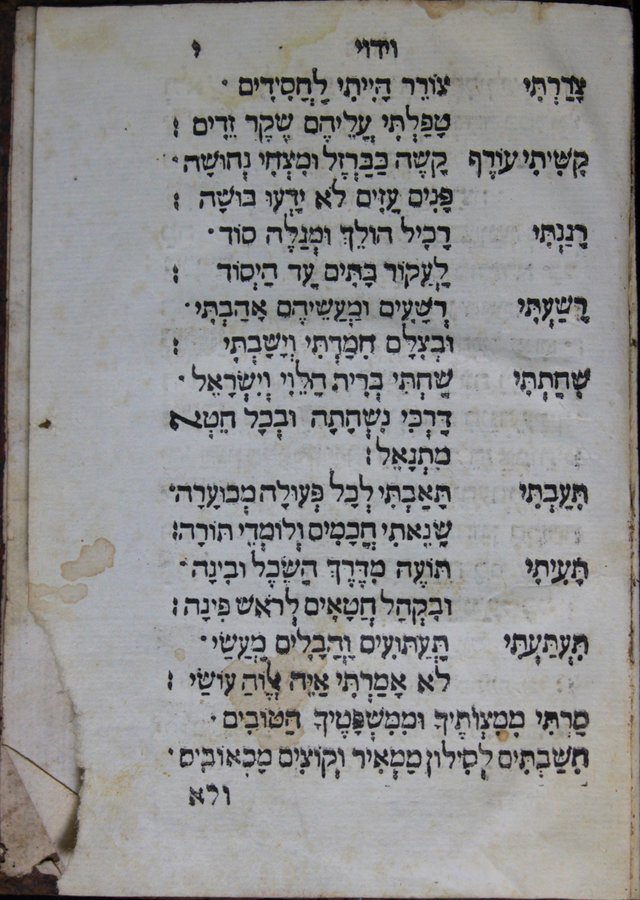 וידוי י
צָרַרְתִּי צוֹרֵר הָיִיתִי לַחֲסִידִים ·
טָפַלְתִּי עֲלֵיהֶם שֶׁקֶר זֵדִים :
קָשִׁיתִי עוֹרֶף קָשֶׁה כַּבַּרְזֶל וּמִצְחִי נְחוּשָׁה ·
פָּנִים עַזִּים לֹא יָדְעוּ בוּשָׁה :
רָגַנְתִּי רָכִיל הוֹלֵךְ וּמְגַלֶּה סוֹד ·
לַעֲקוֹר בָּתִּים עַד הַיְסוֹד :
רָשַׁעְתִּי רְשָׁעִים וּמַעֲשֵׂיהֶם אָהַבְתִּי ·
וּבְצִלָּם חִמַּדְתִּי וְיָשַׁבְתִּי :
שִׁחַתְתִּי שִׁחַתִּי בְּרִית הַלֵּוִי וְיִשְׂרָאֵל ·
דַּרְכִּי נִשְׁחָתָה וּבְכָל חֵטְא
מִתְגָּאֵל :
תִּעַבְתִּי תָּאַבְתִּי לְכָל פְּעוּלָה מְכוֹעָרָה ·
שָׂנֵאתִי חֲכָמִים וְלוֹמְדֵי תוֹרָה :
תָּעִיתִי תּוֹעֶה מִדֶּרֶךְ הַשֵּׂכֶל וּבִינָה ·
וּבִקְהַל חֲטָאִים לְרֹאשׁ פִּינָה :
תִּעְתַּעְתִּי תַּעְתּוּעִים וַהֲבָלִים מַעֲשַׂי ·
לֹא אָמַרְתִּי אַיֵּה אֱלוֹהַּ עוֹשַׂי :
סַרְתִּי מִמִּצְוֹתֶיךָ וּמִמִּשְׁפָּטֶיךָ הַטּוֹבִים ·
חֲשַׁבְתִּים לְסִילוֹן מַמְאִיר וְקוֹצִים מַכְאוֹבִים ·
ולא